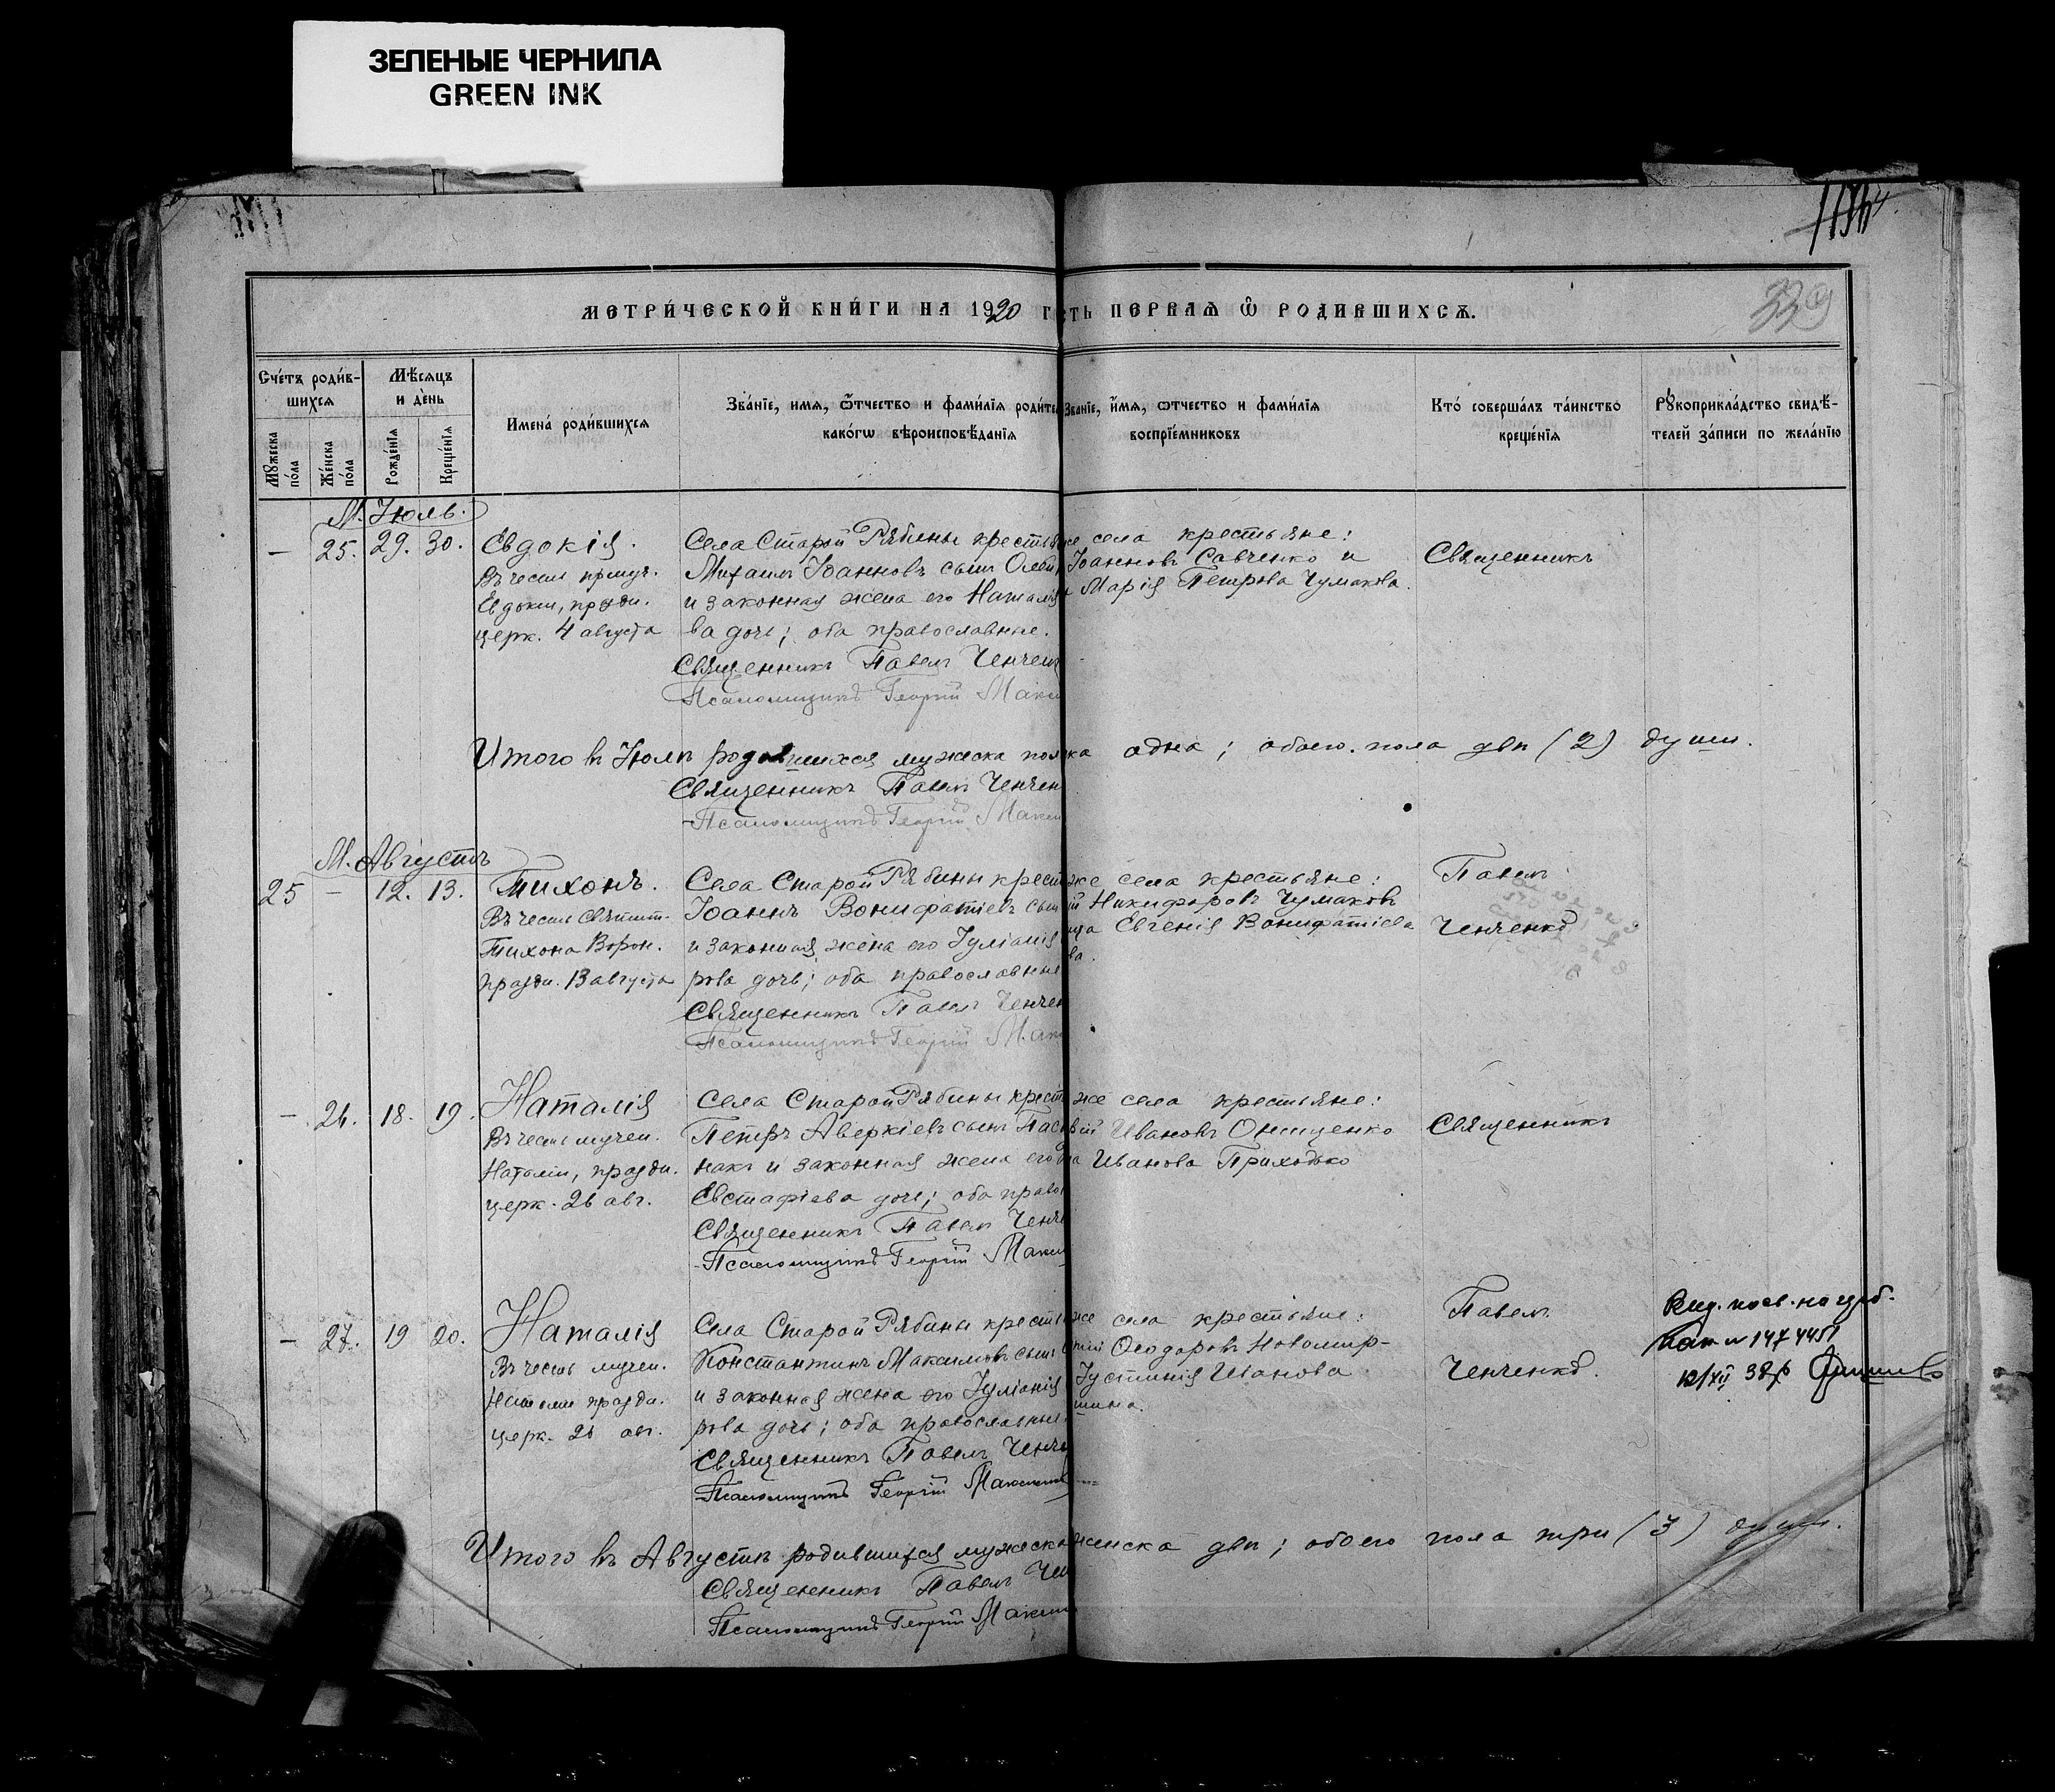 ЗЕЛЕНЫЕ ЧЕРНИЛА
GREEN INK
339
МЕТРИ́ЧЕСКОЙ КНИ́ГИ НА 1920 Г
СТЬ ПЕРВАѦ Ѿ РОДИВШИХСѦ.
Сче́тъ роди́в-
шихсѧ
Мѣ́сѧцъ
и де́нь
Мꙋжеска
по́ла
Же́нска
по́ла
Рожде́нїѧ
Креще́нїѧ
Имена́ роди́вшихсѧ
Зва́нїе, имѧ, ѻ҆́тчество и фами́лїѧ роди́те
како́гѡ вѣроисповѣ́данїѧ
Зва́нїе, и҆́мѧ, ѻтчество и фами́лїѧ
воспрїе́мниковъ
Кто́ соверша́лъ та́инство
креще́нїѧ
Рꙋкоприкла́дство свидѣ́-
телей за́писи по жела́нїю
М. Іюль.
— 25. 29. 30. Евдокія.
Въ честь примуч.
Евдокіи, праздн.
церк. 4 августа
Села Старой Рябины крестья
Михаилъ Іоанновъ сынъ Олей
и законная жена его Наталія
ва дочь; оба православные.
Священникъ Павелъ Ченчен
Псаломщикъ Георгій Макси
же села крестьяне:
Іоанновъ Савченко и
Марія Петрова Чумакова.
Священникъ
Итого въ Іюлѣ родившихся мужеска пол
ка одна; обоего пола двѣ (2) души.
Священникъ Павелъ Ченчен
Псаломщикъ Георгій Макси
М. Августъ
25 — 12. 13. Тихонъ.
Въ честь Святит.
Тихона Ворон.
праздн. 13 августа
Села Старой Рябины крест
Іоаннъ Вонифатіевъ сын
и законная жена его Іуліанія
рова дочь; оба православные
Священникъ Павелъ Ченчен
Псаломщикъ Георгій Мак
же села крестьяне:
й Никифоровъ Чумаковъ
ица Евгенія Вонифатіева
ва.
Павелъ
Ченченко
— 26. 18. 19. Наталія
Въ честь мучен.
Наталіи, праздн.
церк. 26 авг.
Села Старой Рябины крест
Петръ Аверкіевъ сынъ Пас
накъ и законная жена его
Евстафіева дочь; оба право
Священникъ Павелъ Ченче
Псаломщикъ Георгій Макси
же села крестьяне:
вій Ивановъ Онищенко
на Иванова Приходько
Священникъ
— 27. 19 20. Наталія
Въ честь мучен.
Наталіи праздн.
церк. 26 авг.
Села Старой Рябины кресть
Константинъ Максимовъ сынъ
и законная жена его Іуліанія
рова дочь; оба православные.
Священникъ Павелъ Ченче
Псаломщикъ Георгій Максимов
же села крестьяне:
Ѳеодоровъ Новомир-
Іустинія Иванова
шина.
Павелъ
Ченченко.
147445
12/XII 38 р
Итого въ Августѣ родившихся мужеска
женска двѣ; обоего пола три (3) души.
Священникъ Павелъ Чен
Псаломщикъ Георгій Макси